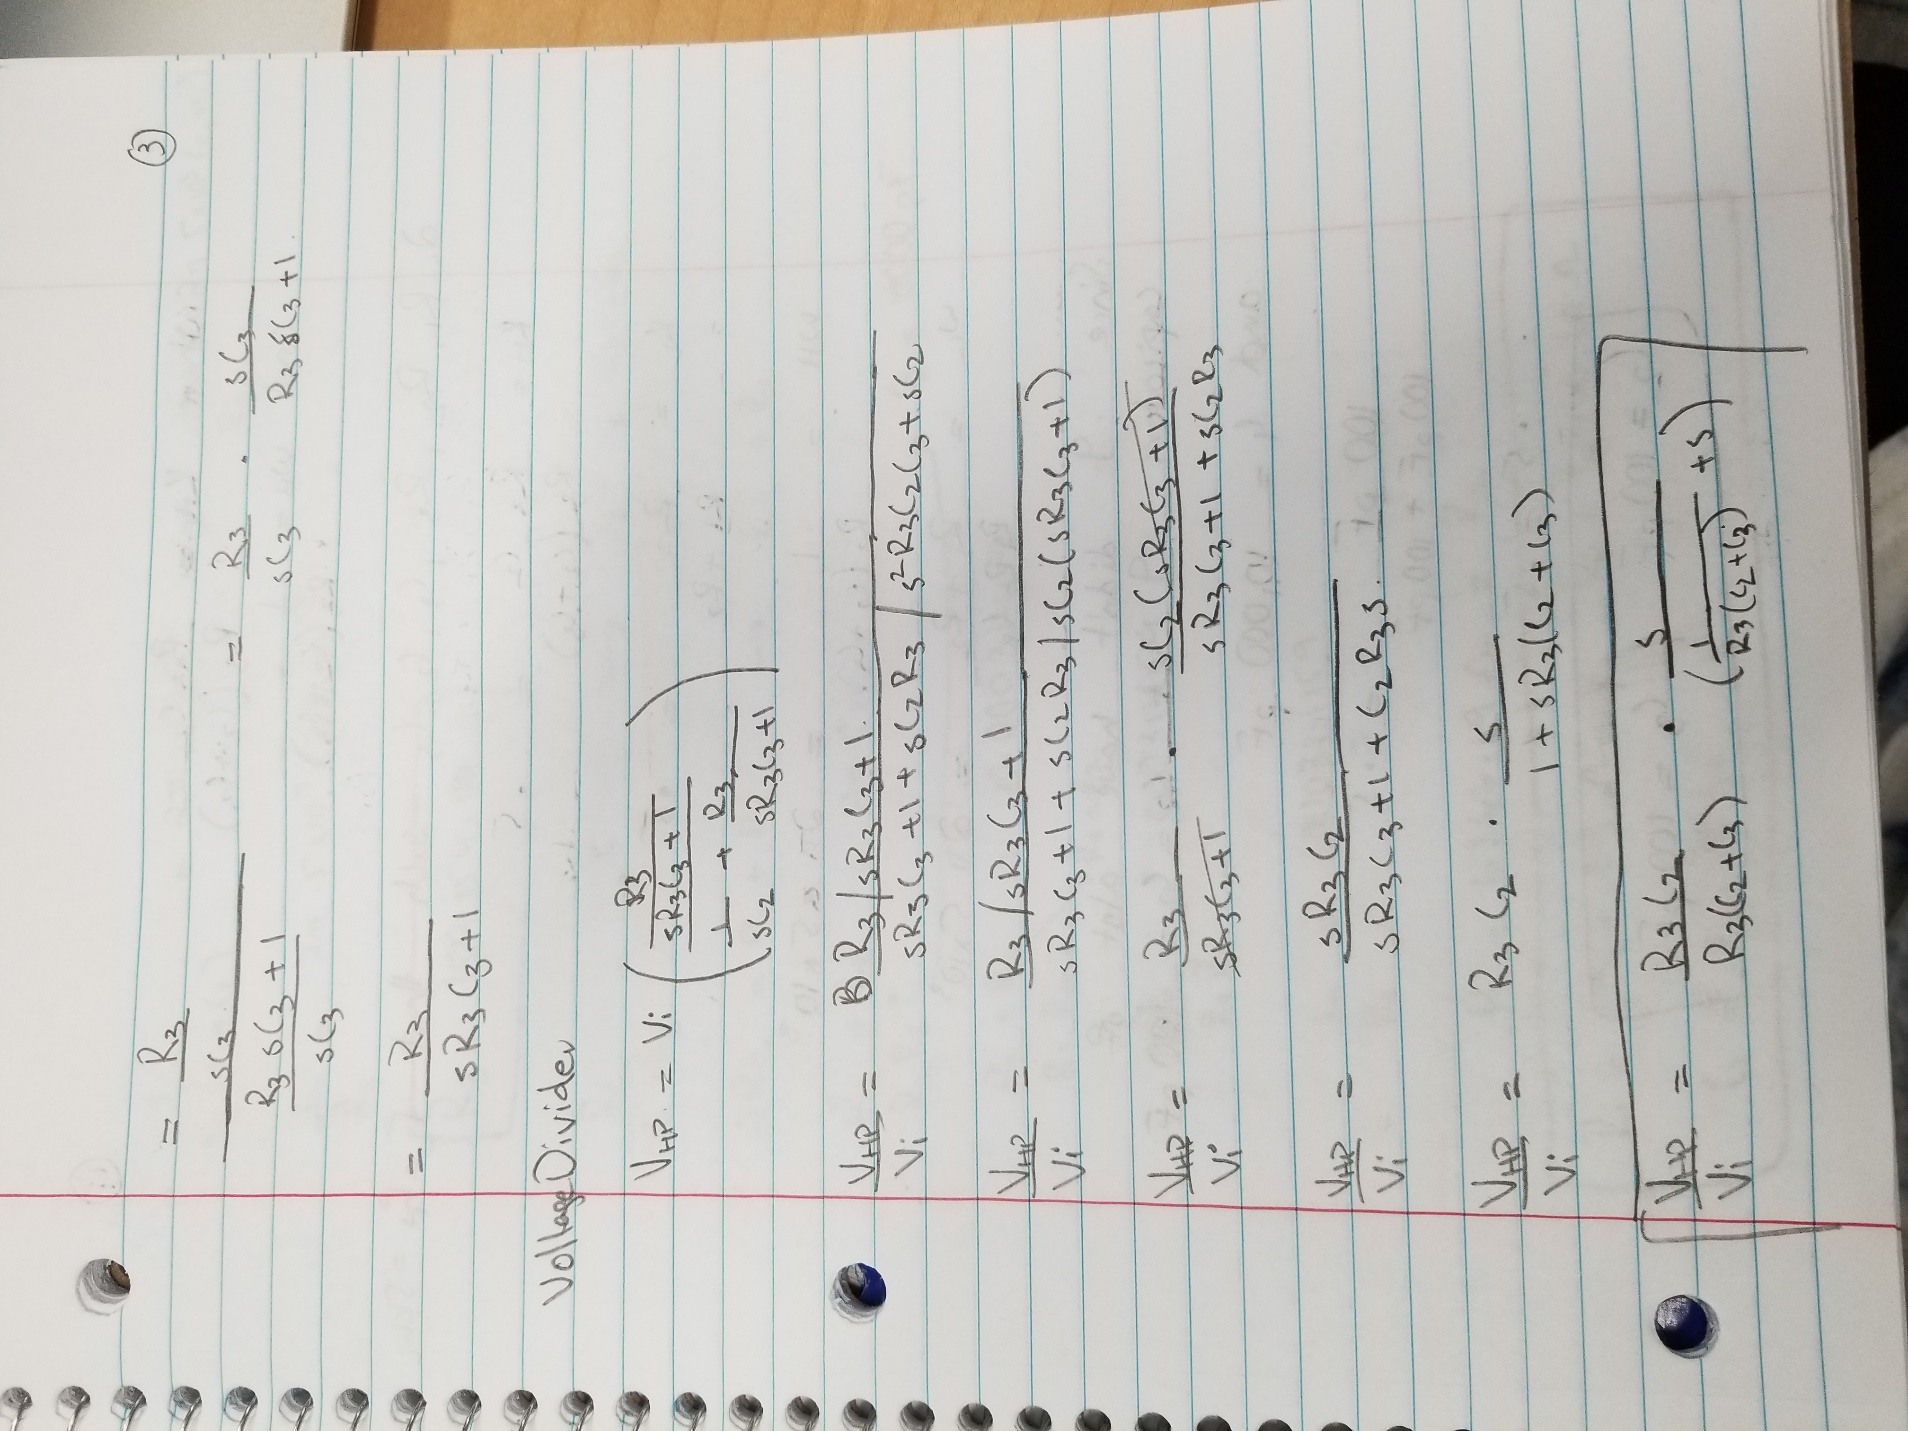 ③
= (R₃/sC₃) / ((R₃sC₃+1)/sC₃) = R₃/sC₃ · sC₃/(R₃sC₃+1)
= R₃/(sR₃C₃+1)
Voltage Divider
V_HP = Vi ( (R₃/(sR₃C₃+1)) / (1/sC₂ + R₃/(sR₃C₃+1)) )
V_HP/Vi = (R₃/sR₃C₃+1) / (sR₃C₃+1+sC₂R₃ / s²R₃C₂C₃+sC₂)
V_HP/Vi = (R₃/sR₃C₃+1) / (sR₃C₃+1+sC₂R₃/sC₂(sR₃C₃+1))
V_HP/Vi = R₃/(sR₃C₃+1) · sC₂(sR₃C₃+1)/(sR₃C₃+1+sC₂R₃)
V_HP/Vi = sR₃C₂/(sR₃C₃+1+C₂R₃s)
V_HP/Vi = R₃C₂ · s/(1+sR₃(C₂+C₃))
V_HP/Vi = R₃C₂/(R₃(C₂+C₃)) · s/(1/(R₃(C₂+C₃)) + s)